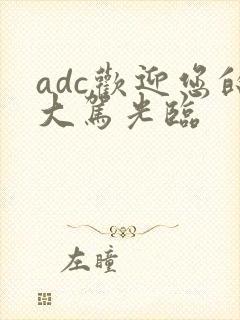 adc歡迎您的
大駕光臨
左瞳